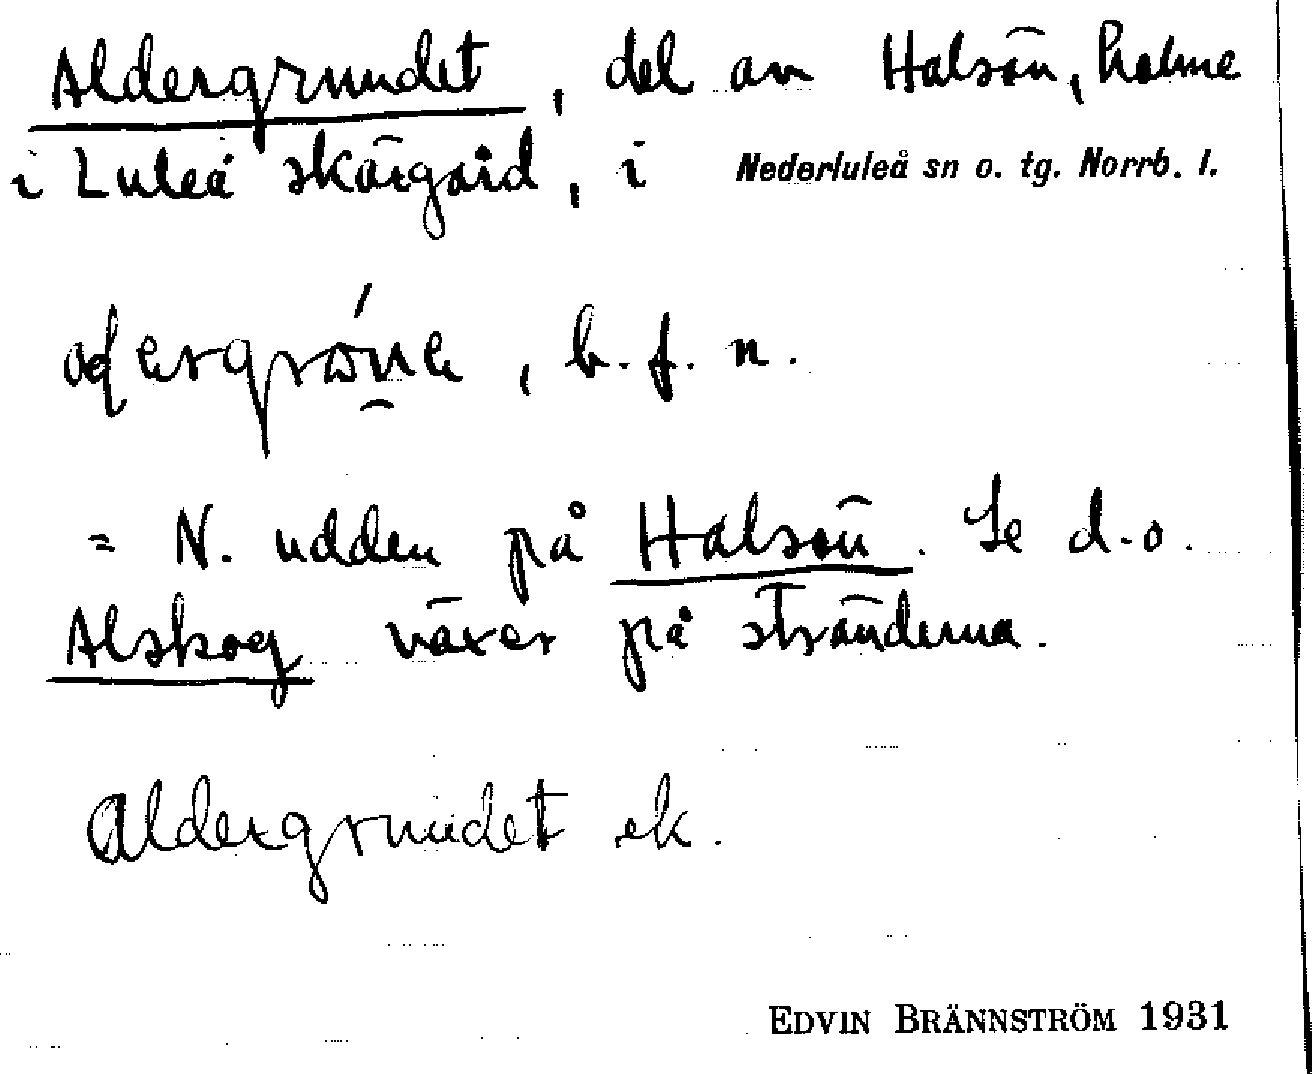 Aldergrundet, del av Halsön, holme
i Luleå skärgård, i Nederluleå sn o. tg. Norrb. l.
b. f. n.
= N. udden på Halsön. Se d.o.
Alskog växer på stränderna.
Aldergrundet ek.
EDVIN BRÄNNSTRÖM 1931